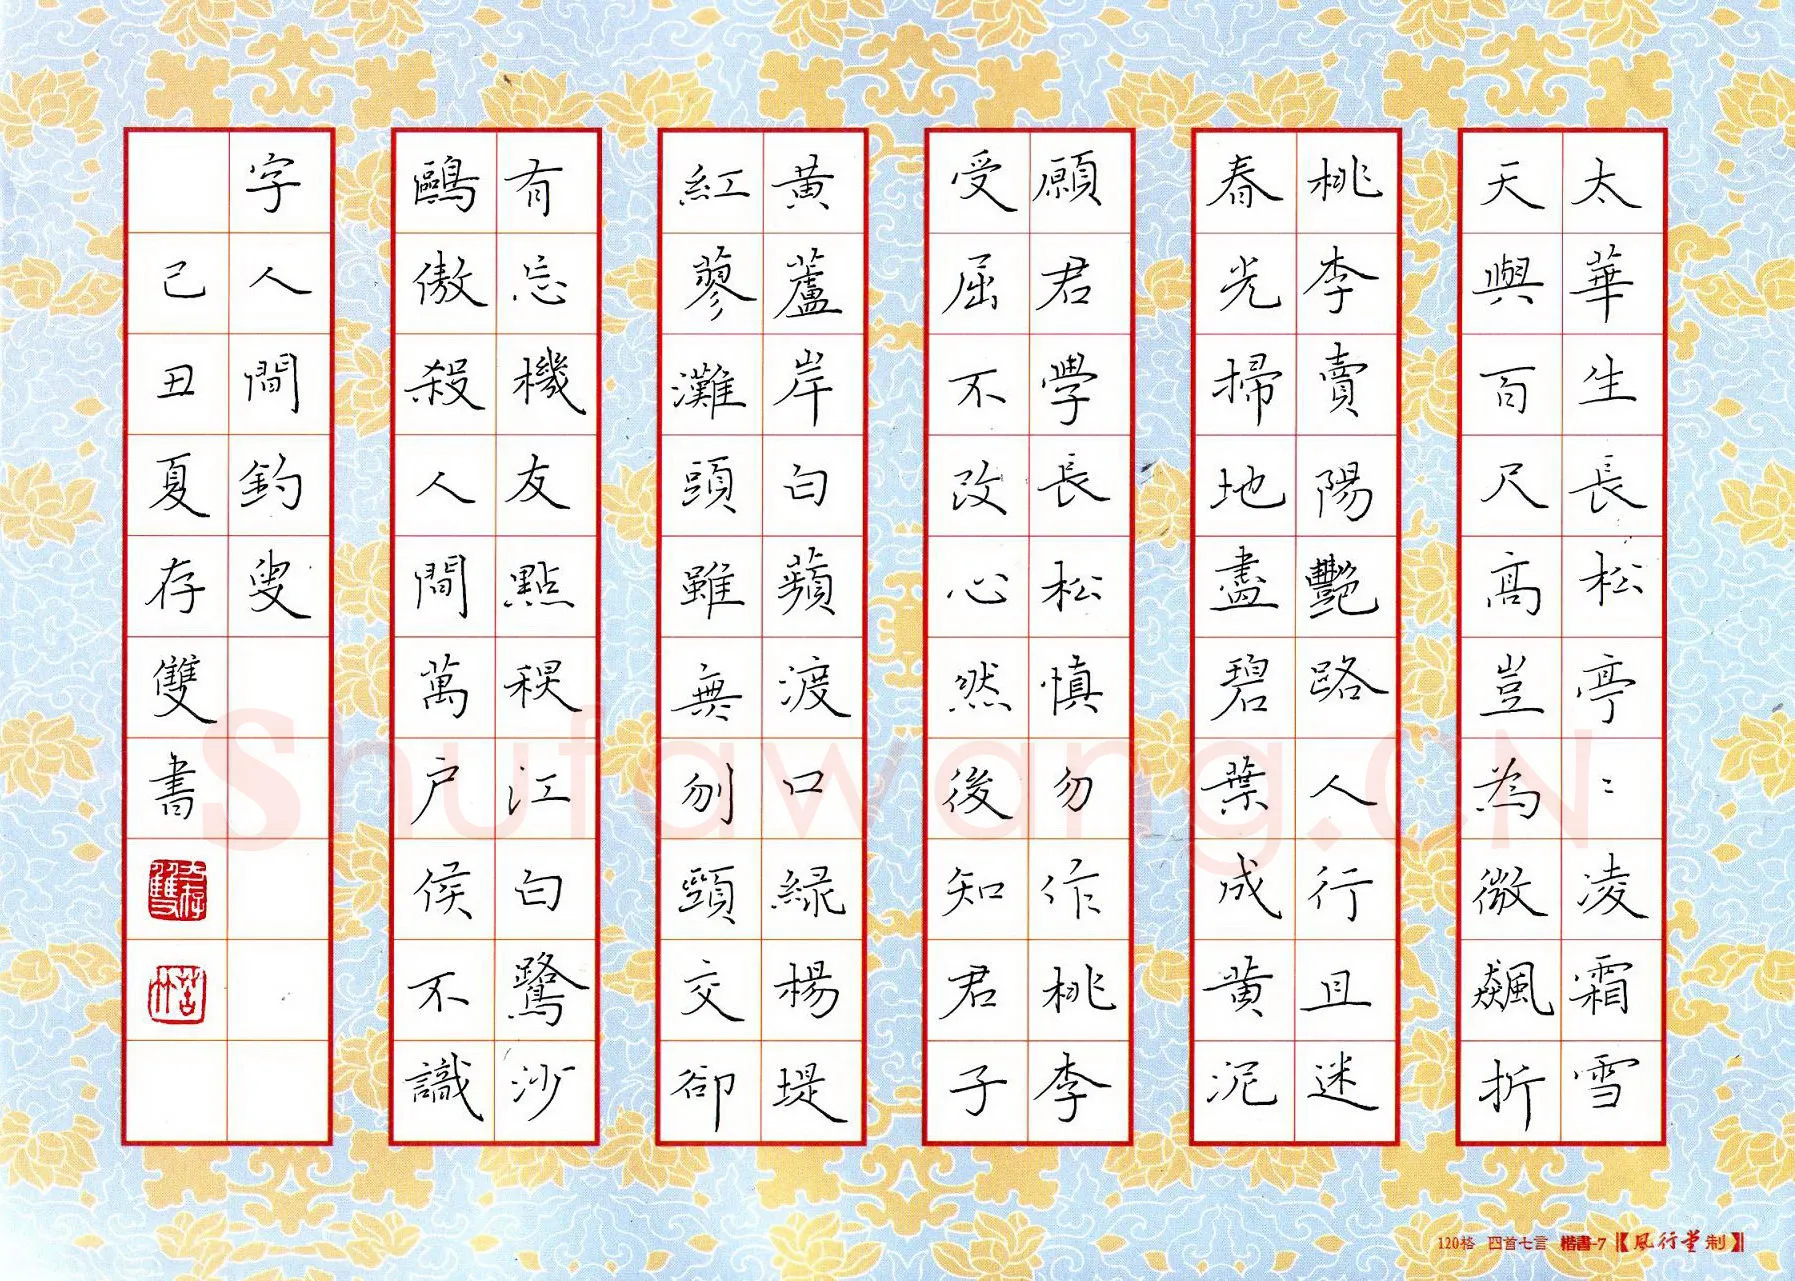 太華生長松亭〻凌霜雪
天與百尺高豈為微飈折
桃李賣陽艷路人行且迷
春光掃地盡碧葉成黄泥
願君學長松慎勿作桃李
受屈不改心然後知君子
黄蘆岸白蘋渡口緑楊堤
紅蓼灘頭雖無刎頸交卻
有忘機友點秋江白鷺沙
鷗傲殺人間萬户侯不識
字人間釣叟
己丑夏存雙書
大存雙
苦竹
120格 四首七言 楷書-7【風行堂制】
Shufawang.CN